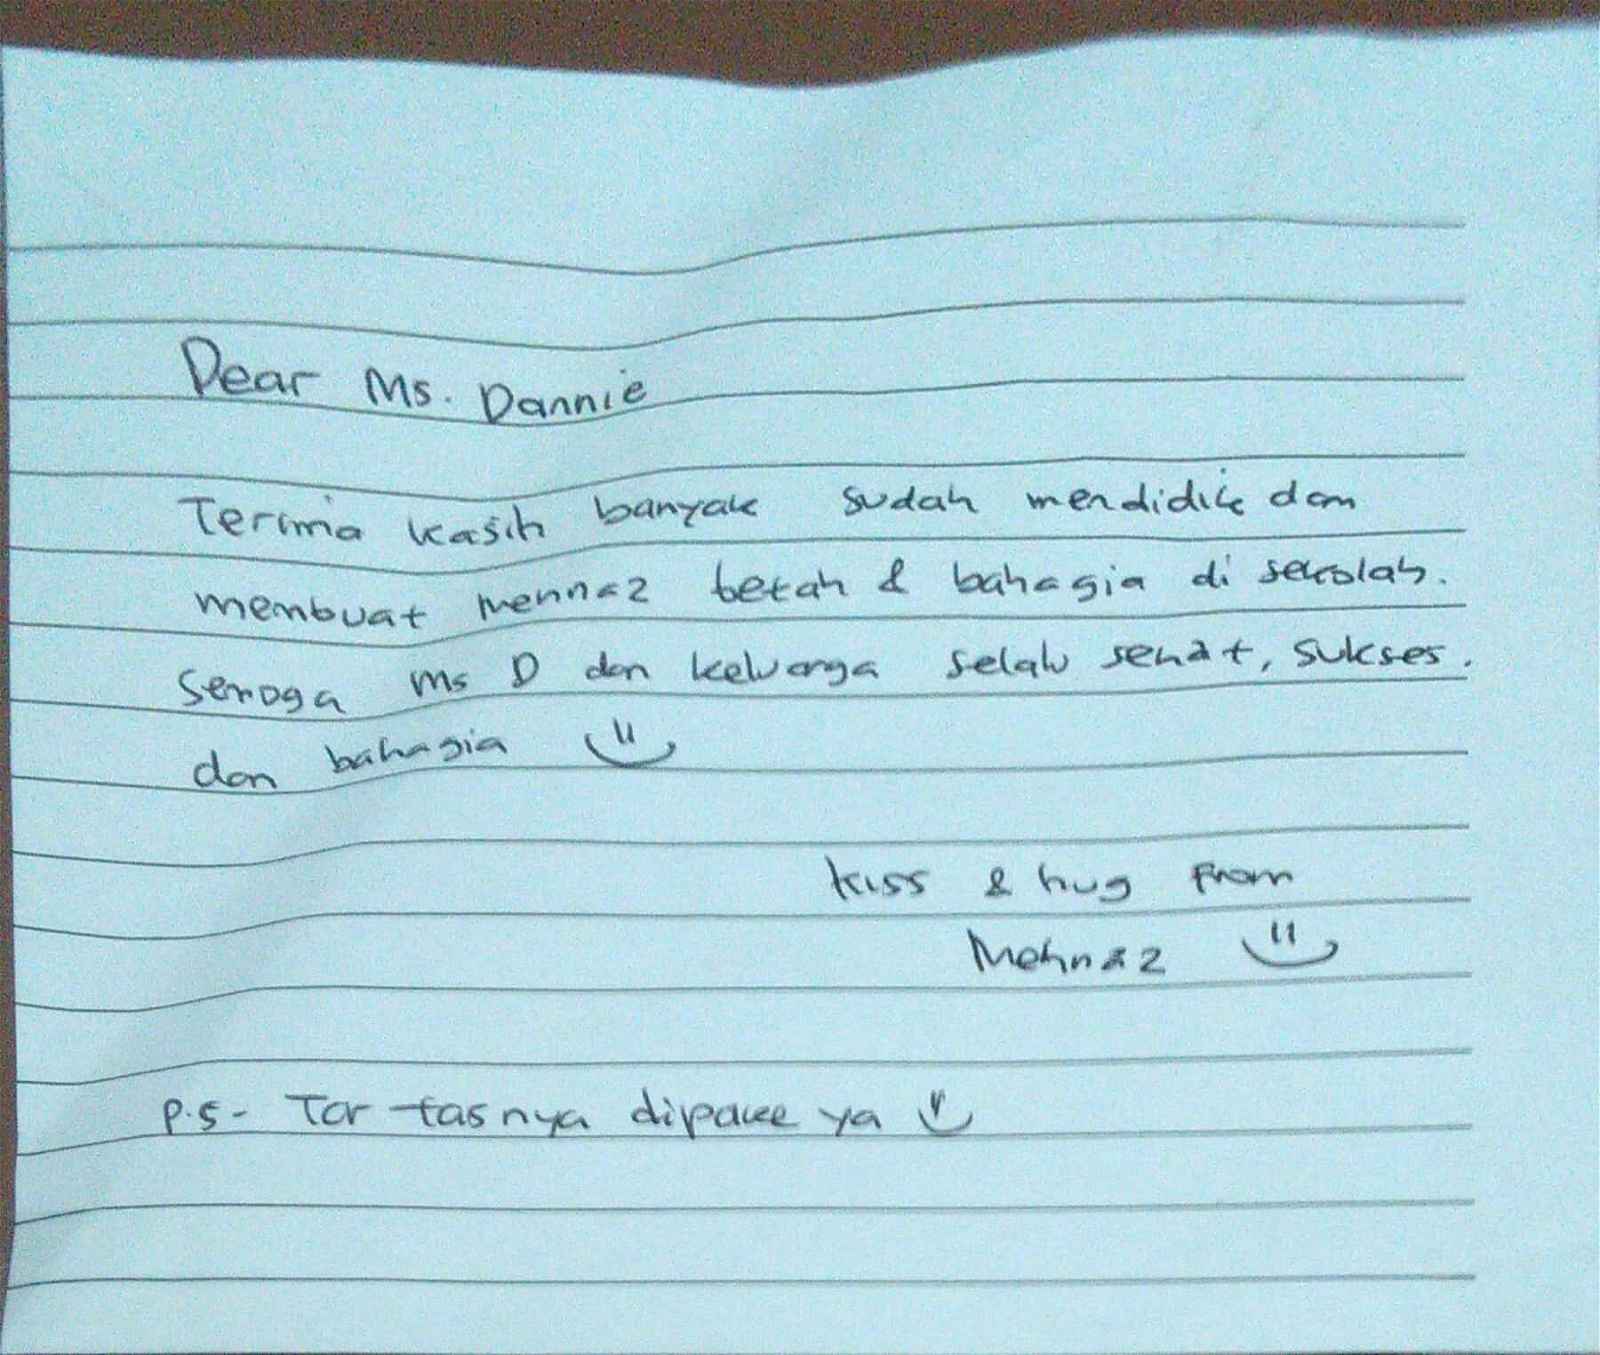 Dear Ms. Dannie
Terima kasih banyak sudah mendidik dan
membuat Mehnaz betah & bahagia di sekolah.
Semoga Ms D dan keluarga selalu sehat, sukses.
dan bahagia
kiss & hug From
Mehnaz
P.S - Tar tasnya dipake ya